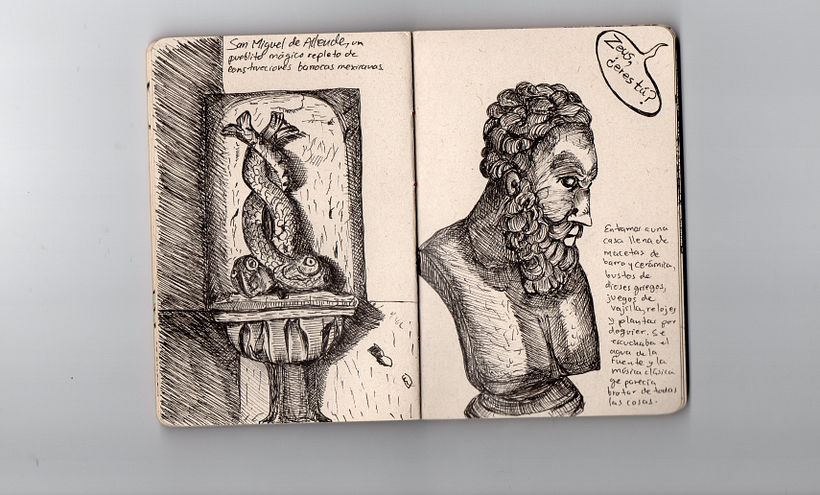 San Miguel de Allende, un
pueblito mágico repleto de
construcciones barrocas mexicanas.
Zeus,
¿eres tú?
Entramos a una
casa llena de
macetas de
barro y cerámica,
bustos de
dioses griegos,
juegos de
vajilla, relojes
y plantas por
doquier. Se
escuchaba el
agua de la
fuente y la
música clásica
que parecía
brotar de todas
las cosas.